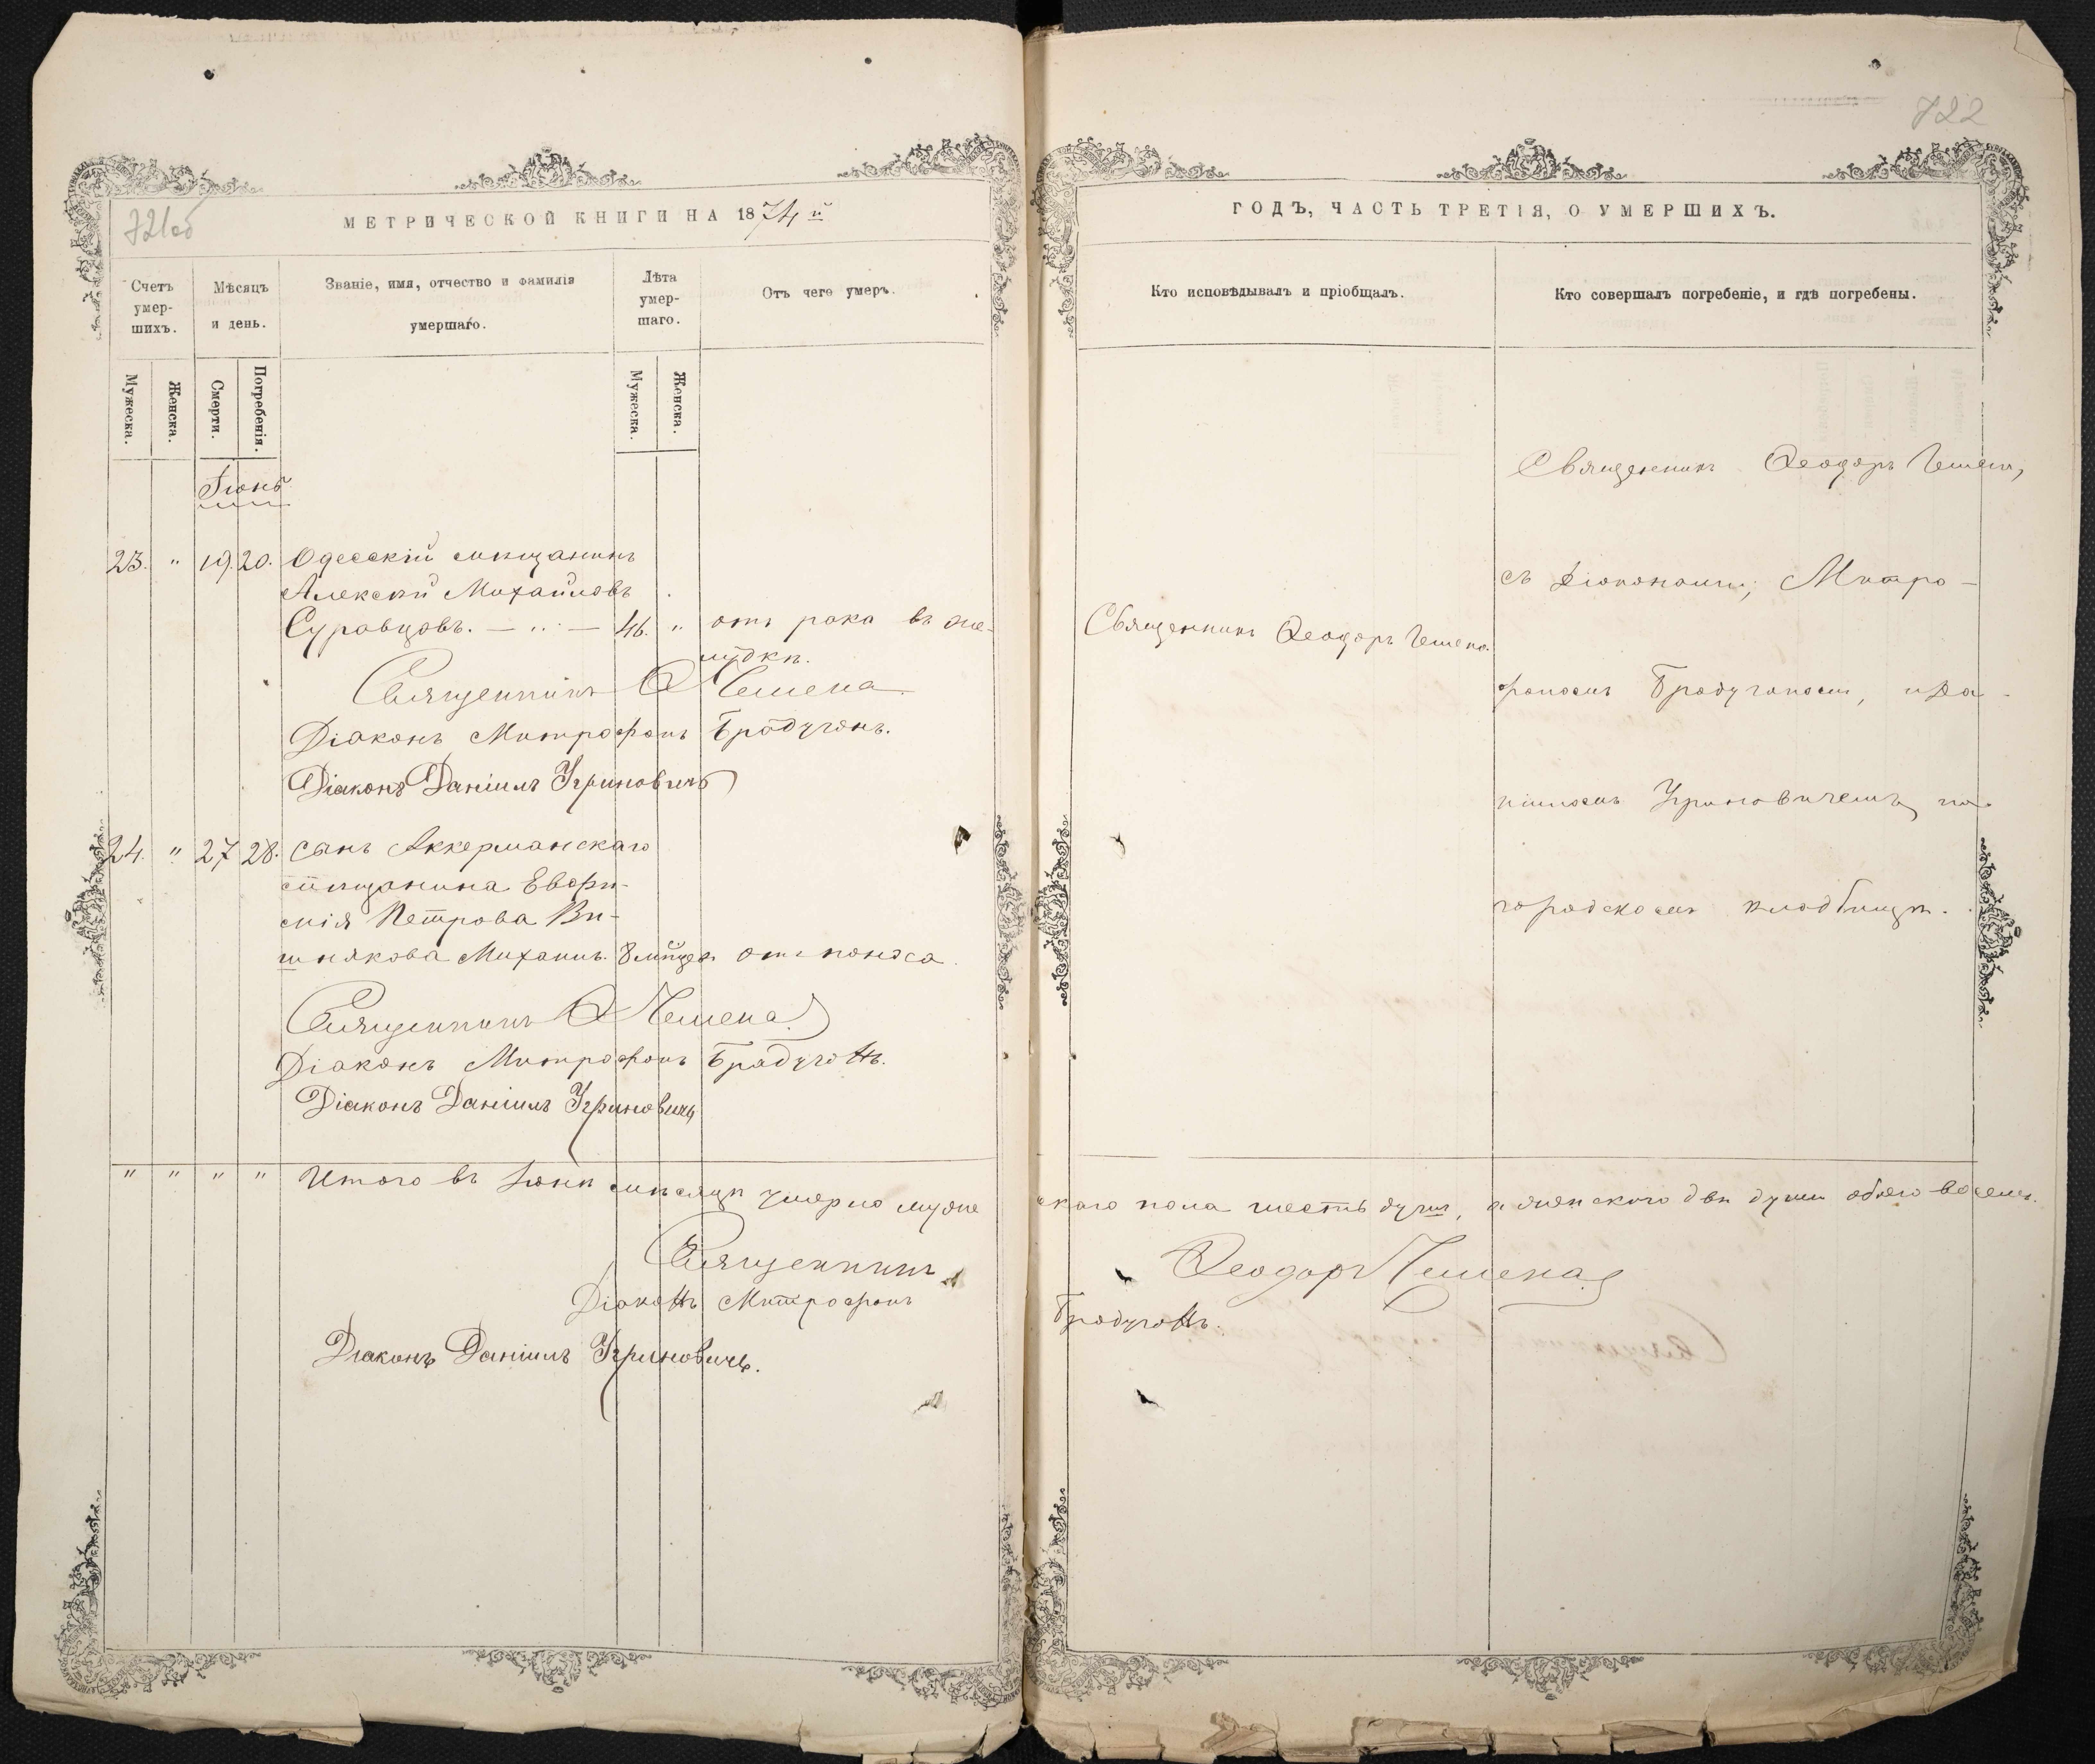 721об
МЕТРИЧЕСКОЙ КНИГИ НА 1874й
Счетъ умер- шихъ.
Мѣсяцъ и день.
Званіе, имя, отчество и фамилія умершаго.
Лѣта умер- шаго.
Отъ чего умеръ.
Мужеска.
Женска.
Смерти.
Погребенія.
Мужеска.
Женска.
Іюнь
23. " 19. 20. Одесскій мѣщанинъ
Алексѣй Михайловъ
Суровцовъ. — „ — 46. " отъ рака въ же-
лудкѣ.
Священникъ Ѳ Чемена
Діаконъ Митрофанъ Брадучанъ.
Діаконъ Даніилъ Угриновичъ
24. " 27 28. Сынъ Аккерманскаго
мѣщанина Евфи-
мія Петрова Ви-
шнякова Михаилъ. 8 мѣсяц. отъ поноса.
Священникъ Ѳ Чемена
Діаконъ Митрофанъ Брадучанъ.
Діаконъ Даніилъ Угриновичъ
" " " " Итого въ Іюнѣ мѣсяцѣ умерло муже
Священникъ
Діаконъ Митрофанъ
Діаконъ Даніилъ Угриновичъ.
722
ГОДЪ, ЧАСТЬ ТРЕТІЯ, О УМЕРШИХЪ.
Кто исповѣдывалъ и пріобщалъ.
Кто совершалъ погребеніе, и гдѣ погребены.
Священникъ Ѳеодоръ Чемена
Священникъ Ѳеодоръ Чемена,
съ Діаконами; Митро-
фаномъ Брадучаномъ, и Да-
ніиломъ Угриновичемъ, на
городскомъ кладбищѣ.
скаго пола шесть душъ, а женскаго двѣ души обоего восемь.
Ѳеодоръ Чемена
Брадучанъ.